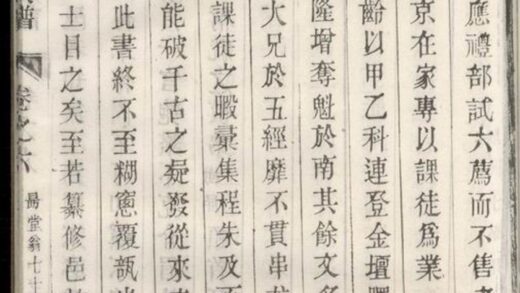 應禮部試六薦而不售
京在家專以課徒爲業
齡以甲乙科連登金壇
隆增奪魁於南其餘文
大兄於五經靡不貫串
課徒之暇彙集程朱及
能破千古之疑發從來
此書終不至糊窻覆瓿
士目之矣至若纂修邑
譜 卷之六 堂翁七十